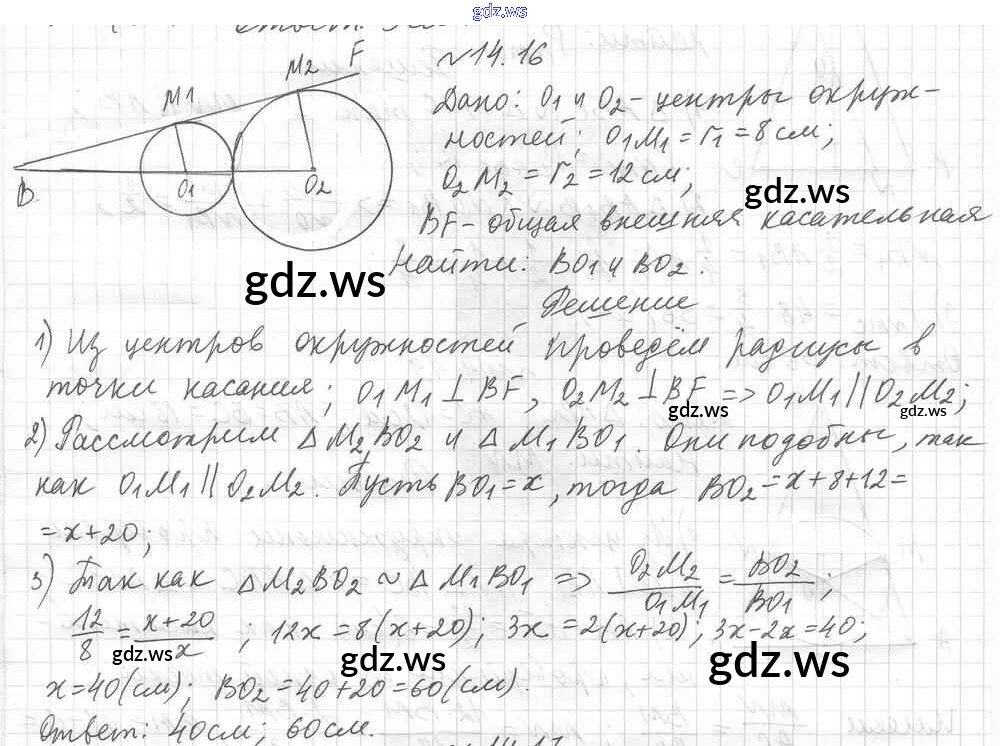 gdz.ws
Ответ:
№14.16
M1 M2 F
B O1 O2
Дано: O1 и O2 - центры окруж-
ностей; O1M1 = r1 = 8 см;
O2M2 = r2 = 12 см;
gdz.ws
BF - общая внешняя касательная
Найти: BO1 и BO2.
gdz.ws
Решение
1) Из центров окружностей проведём радиусы в
точки касания; O1M1 ⊥ BF, O2M2 ⊥ BF => O1M1 || O2M2;
gdz.ws gdz.ws
2) Рассмотрим Δ M2BO2 и Δ M1BO1. Они подобны, так
как O1M1 || O2M2. Пусть BO1 = x, тогда BO2 = x+8+12=
= x+20;
3) Так как ΔM2BO2 ~ Δ M1BO1 => O2M2/O1M1 = BO2/BO1;
12/8 = x+20/x; 12x = 8(x+20); 3x = 2(x+20); 3x-2x=40;
gdz.ws gdz.ws gdz.ws
x=40(см); BO2 = 40+20 = 60(см).
Ответ: 40см; 60см.
№14.17